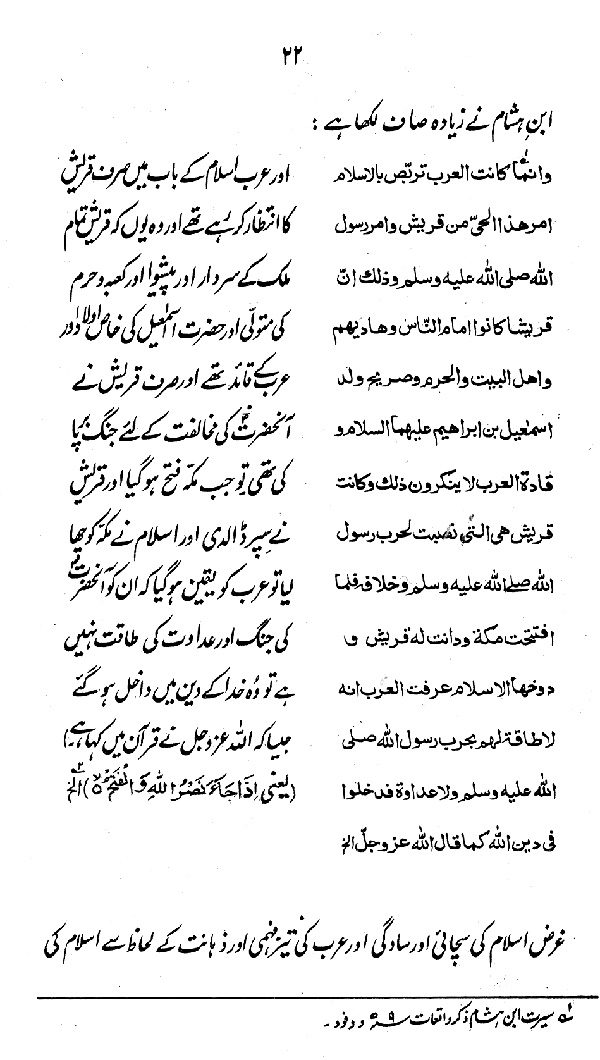 ۲۲
ابن ہشام نے زیادہ صاف لکھا ہے :
وانما کانت العرب تربّص بالاسلام
امر ھذا الحیّ من قریش وامر رسول
الله صلی الله علیه وسلم وذلك انّ
قریشا کانوا امام النّاس وھادیھم
واھل البیت والحرم وصریح ولد
اسمٰعیل بن ابراھیم علیھما السلام و
قادة العرب لا ینکرون ذلك وکانت
قریش ھی التی نصبت لحرب رسول
الله صلے الله علیه وسلم وخلافه فلما
افتتحت مکة ودانت له قریش و
دوخھا الاسلام عرفت العرب انه
لا طاقة لھم بحرب رسول الله صلی
الله علیه وسلم ولا عداوة فدخلوا
فی دین الله کما قال الله عز وجلّ الخ
اور عرب اسلام کے باب میں صرف قریش
کا انتظار کر رہے تھے اور وہ یوں کہ قریش تمام
ملک کے سردار اور پیشوا اور کعبہ و حرم
کی متولّی اور حضرت اسمٰعیل کی خاص اولاد اور
عرب کے قائد تھے اور صرف قریش نے
آنحضرتؐ کی مخالفت کے لئے جنگ برپا
کی تھی تو جب مکہ فتح ہو گیا اور قریش
نے سپر ڈالدی اور اسلام نے مکہ کو چھا
لیا تو عرب کو یقین ہو گیا کہ ان کو آنحضرتؐ
کی جنگ اور عداوت کی طاقت نہیں
ہے تو وہ خدا کے دین میں داخل ہو گئے
جیسا کہ اللہ عز وجل نے قرآن میں کہا ہے۔
(یعنی اِذَا جَاءَ نَصْرُ اللهِ وَالْفَتْحُ) الخ
غرض اسلام کی سچائی اور سادگی اور عرب کی تیز فہمی اور ذہانت کے لحاظ سے اسلام کی
لہ سیرت ابن ہشام ذکر واقعات سنہ ۹ھ و وفود۔